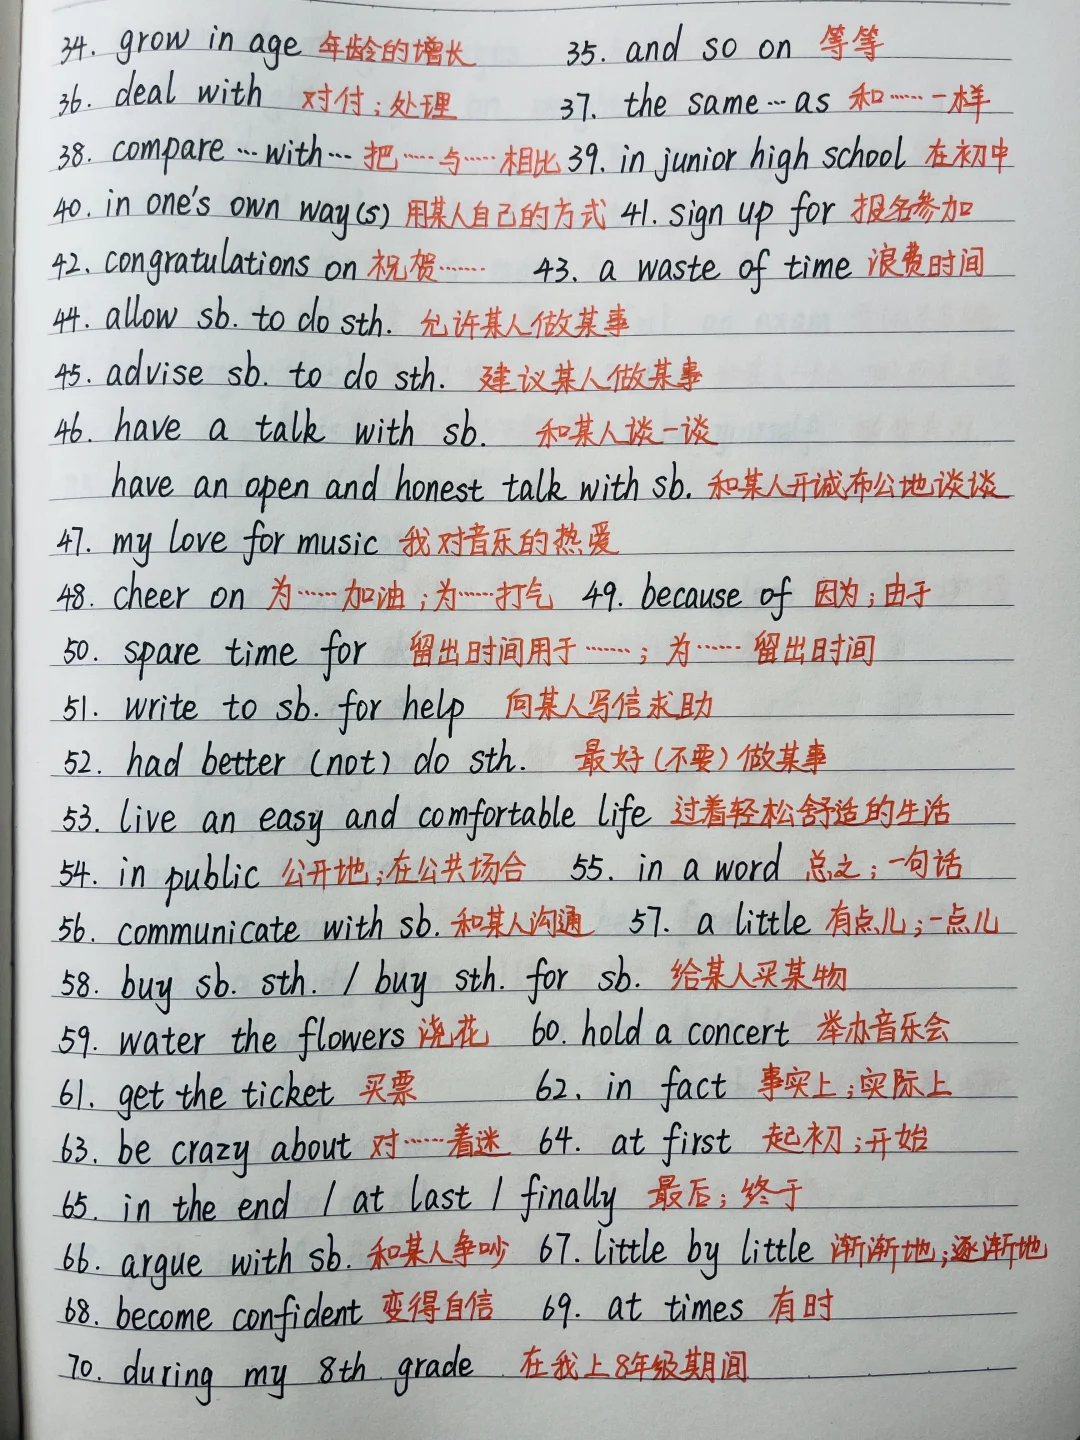 34. grow in age 年龄的增长 35. and so on 等等
36. deal with 对付；处理 37. the same … as 和……一样
38. compare … with … 把……与……相比 39. in junior high school 在初中
40. in one's own way(s) 用某人自己的方式 41. sign up for 报名参加
42. congratulations on 祝贺…… 43. a waste of time 浪费时间
44. allow sb. to do sth. 允许某人做某事
45. advise sb. to do sth. 建议某人做某事
46. have a talk with sb. 和某人谈一谈
have an open and honest talk with sb. 和某人开诚布公地谈谈
47. my love for music 我对音乐的热爱
48. cheer on 为……加油；为……打气 49. because of 因为；由于
50. spare time for 留出时间用于……；为……留出时间
51. write to sb. for help 向某人写信求助
52. had better (not) do sth. 最好（不要）做某事
53. live an easy and comfortable life 过着轻松舒适的生活
54. in public 公开地；在公共场合 55. in a word 总之；一句话
56. communicate with sb. 和某人沟通 57. a little 有点儿；一点儿
58. buy sb. sth. / buy sth. for sb. 给某人买某物
59. water the flowers 浇花 60. hold a concert 举办音乐会
61. get the ticket 买票 62. in fact 事实上；实际上
63. be crazy about 对……着迷 64. at first 起初；开始
65. in the end / at last / finally 最后；终于
66. argue with sb. 和某人争吵 67. little by little 渐渐地；逐渐地
68. become confident 变得自信 69. at times 有时
70. during my 8th grade 在我上8年级期间